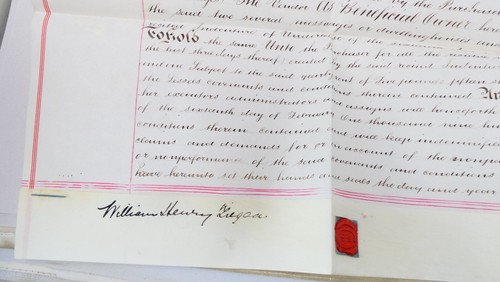 The Vendor As Beneficial Owner
the said two several messuages or dwellinghouses and
To hold the same Unto the Purchaser
the last three days thereof created by the said recited Indenture
and on Subject to the said yearly rent of Five pounds fifteen
the Lessees covenants and conditions therein contained And
her executors administrators and assigns will henceforth
of the sixteenth day of February One thousand nine
conditions therein contained and will keep indemnified
claims and demands for or on account of the
or nonperformance of the said covenants and conditions
have hereunto set their hands and seals the day and year
William Henry